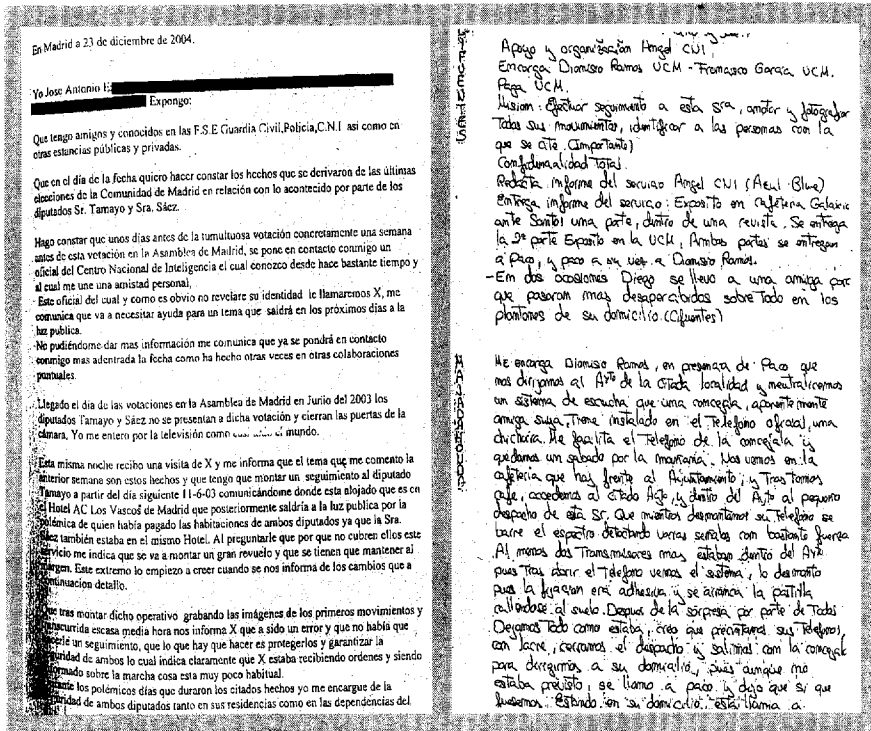 En Madrid a 23 de diciembre de 2004.
Yo Jose Antonio E
Expongo:
Que tengo amigos y conocidos en las F.S.E Guardia Civil, Policia, C.N.I asi como en
otras estancias públicas y privadas.
Que en el día de la fecha quiero hacer constar los hechos que se derivaron de las últimas
elecciones de la Comunidad de Madrid en relación con lo acontecido por parte de los
diputados Sr. Tamayo y Sra. Sáez.
Hago constar que unos días antes de la tumultuosa votación concretamente una semana
antes de esta votación en la Asamblea de Madrid, se pone en contacto conmigo un
oficial del Centro Nacional de Inteligencia el cual conozco desde hace bastante tiempo y
al cual me une una amistad personal,
- Este oficial del cual y como es obvio no revelare su identidad le llamaremos X, me
comunica que va a necesitar ayuda para un tema que saldrá en los próximos días a la
luz publica.
-No pudiéndome dar mas información me comunica que ya se pondrá en contacto
conmigo mas adentrada la fecha como ha hecho otras veces en otras colaboraciones
puntuales.
Llegado el día de las votaciones en la Asamblea de Madrid en Junio del 2003 los
diputados Tamayo y Sáez no se presentan a dicha votación y cierran las puertas de la
cámara, Yo me entero por la televisión como el mundo.
Esta misma noche recibo una visita de X y me informa que el tema que me comento la
anterior semana son estos hechos y que tengo que montar un seguimiento al diputado
Tamayo a partir del día siguiente 11-6-03 comunicándome donde esta alojado que es en
el Hotel AC Los Vascos de Madrid que posteriormente saldría a la luz publica por la
polémica de quien había pagado las habitaciones de ambos diputados ya que la Sra.
Sáez también estaba en el mismo Hotel. Al preguntarle que por que no cubren ellos este
servicio me indica que se va a montar un gran revuelo y que se tienen que mantener al
margen. Este extremo lo empiezo a creer cuando se nos informa de los cambios que a
continuacion detallo.
Que tras montar dicho operativo grabando las imágenes de los primeros movimientos y
transcurrida escasa media hora nos informa X que a sido un error y que no había que
hacerle un seguimiento, que lo que hay que hacer es protegerlos y garantizar la
seguridad de ambos lo cual indica claramente que X estaba recibiendo ordenes y siendo
informado sobre la marcha cosa esta muy poco habitual.
Durante los polémicos días que duraron los citados hechos yo me encargue de la
seguridad de ambos diputados tanto en sus residencias como en las dependencias del
CIFUENTES
Apoyo y organización Angel CNI.
Encarga Dionisio Ramos UCM - Francisco García UCM.
Paga UCM.
Mision: Efectuar seguimiento a esta Sra, anotar y fotografiar
Todos sus movimientos, identificar a las personas con la
que se cite (Importante)
Confidencialidad Total.
Redacta informe del servicio Angel CNI (Azul-Blue)
Entrega informe del servicio: Exposito en cafeteria Galaxic
ante Santol una parte, dentro de una revista. Se entrega
la 2ª parte Exposito en la UCM, Ambas partes se entregan
a Paco, y paco a su vez a Dionisio Ramos.
- En dos ocasiones Diego se llevo a una amiga para
que pasaran mas desapercibidos sobre Todo en los
plantones de su domicilio. (Cifuentes)
MAJADAHONDA
Me encarga Dionisio Ramos, en presencia de Paco que
nos dirijamos al Ayto de la citada localidad y neutralicemos
un sistema de escucha que una concejala, aparentemente
amiga suya, Tiene instalado en el Telefono oficial, una
chicharra. Me facilita el Telefono de la concejala y
quedamos un sabado por la mañania. Nos vemos en la
cafeteria que hay frente al Ajuntamiento, y Tras tomar
cafe, accedemos al citado Ayto, y dentro del Ayto al pequeño
despacho de esta Sr. Que mientras desmontamos su Telefono se
barre el espectro detectando varias señales con bastante fuerza
Al menos dos Transmisores mas estaban dentro del Ayto.
pues Tras abrir el Telefono vemos el sistema, lo desmonto
pues la fijacion era adhesiva y se arranca la patilla
callendose al suelo. Despues de la sorpresa por parte de Todos
Dejamos Todo como estaba, creo que precintamos sus Telefonos
con lacre, cerramos el despacho y salimos con la concejala
para dirigirnos a su domicilio, pues aunque no
estaba previsto, se llamo a paco y dijo que si que
fuesemos. Estando en su domicilio esta llama a